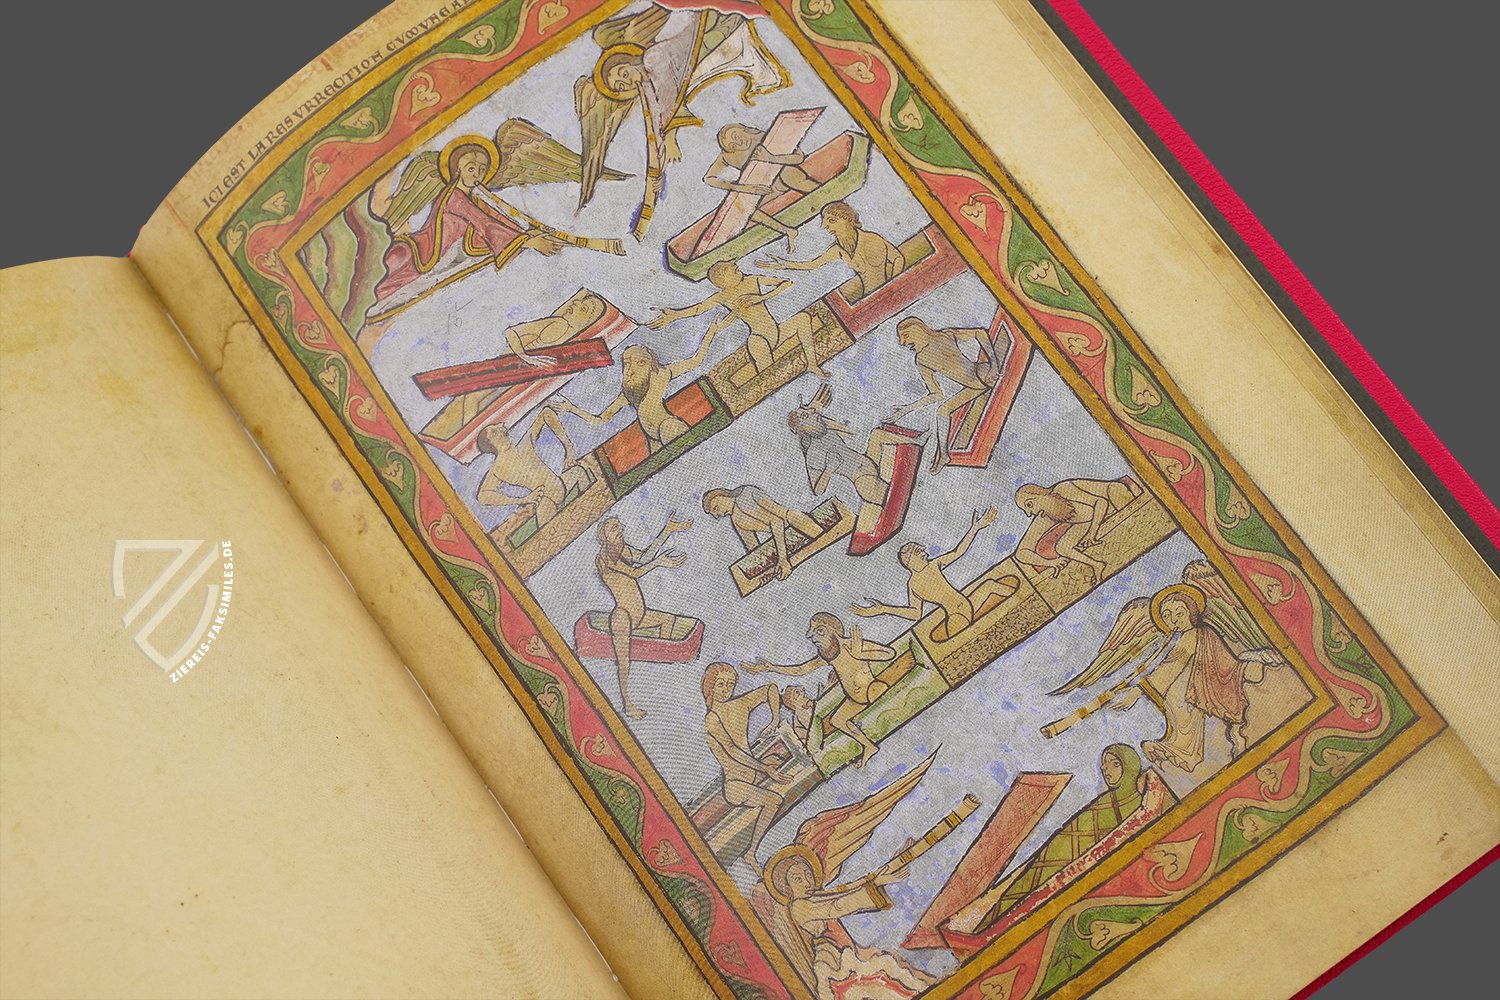 ICI EST LA RESURRECTION CUMUNE A
ZIEREIS-FAKSIMILES.DE